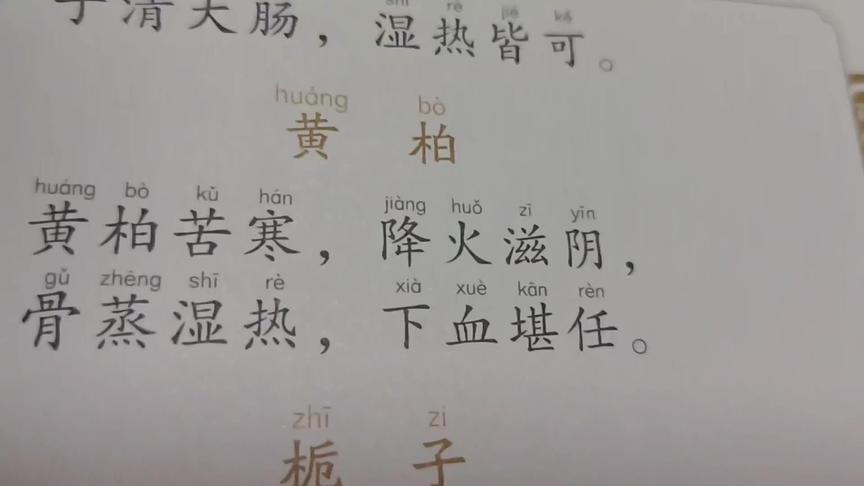 子清大肠，湿热皆可。
huáng bò
黄 柏
huáng bò kǔ hán jiàng huǒ zī yīn
黄柏苦寒，降火滋阴，
gǔ zhēng shī rè xià xuè kān rèn
骨蒸湿热，下血堪任。
zhī zi
栀 子